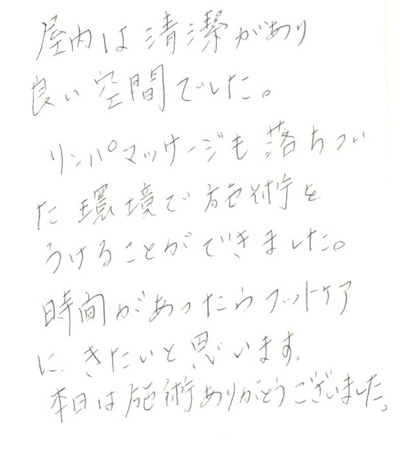 屋内は清潔があり
良い空間でした。
リンパマッサージも落ちつい
た環境で施術を
うけることができました。
時間があったらフットケア
に、きたいと思います。
本日は施術ありがとうございました。